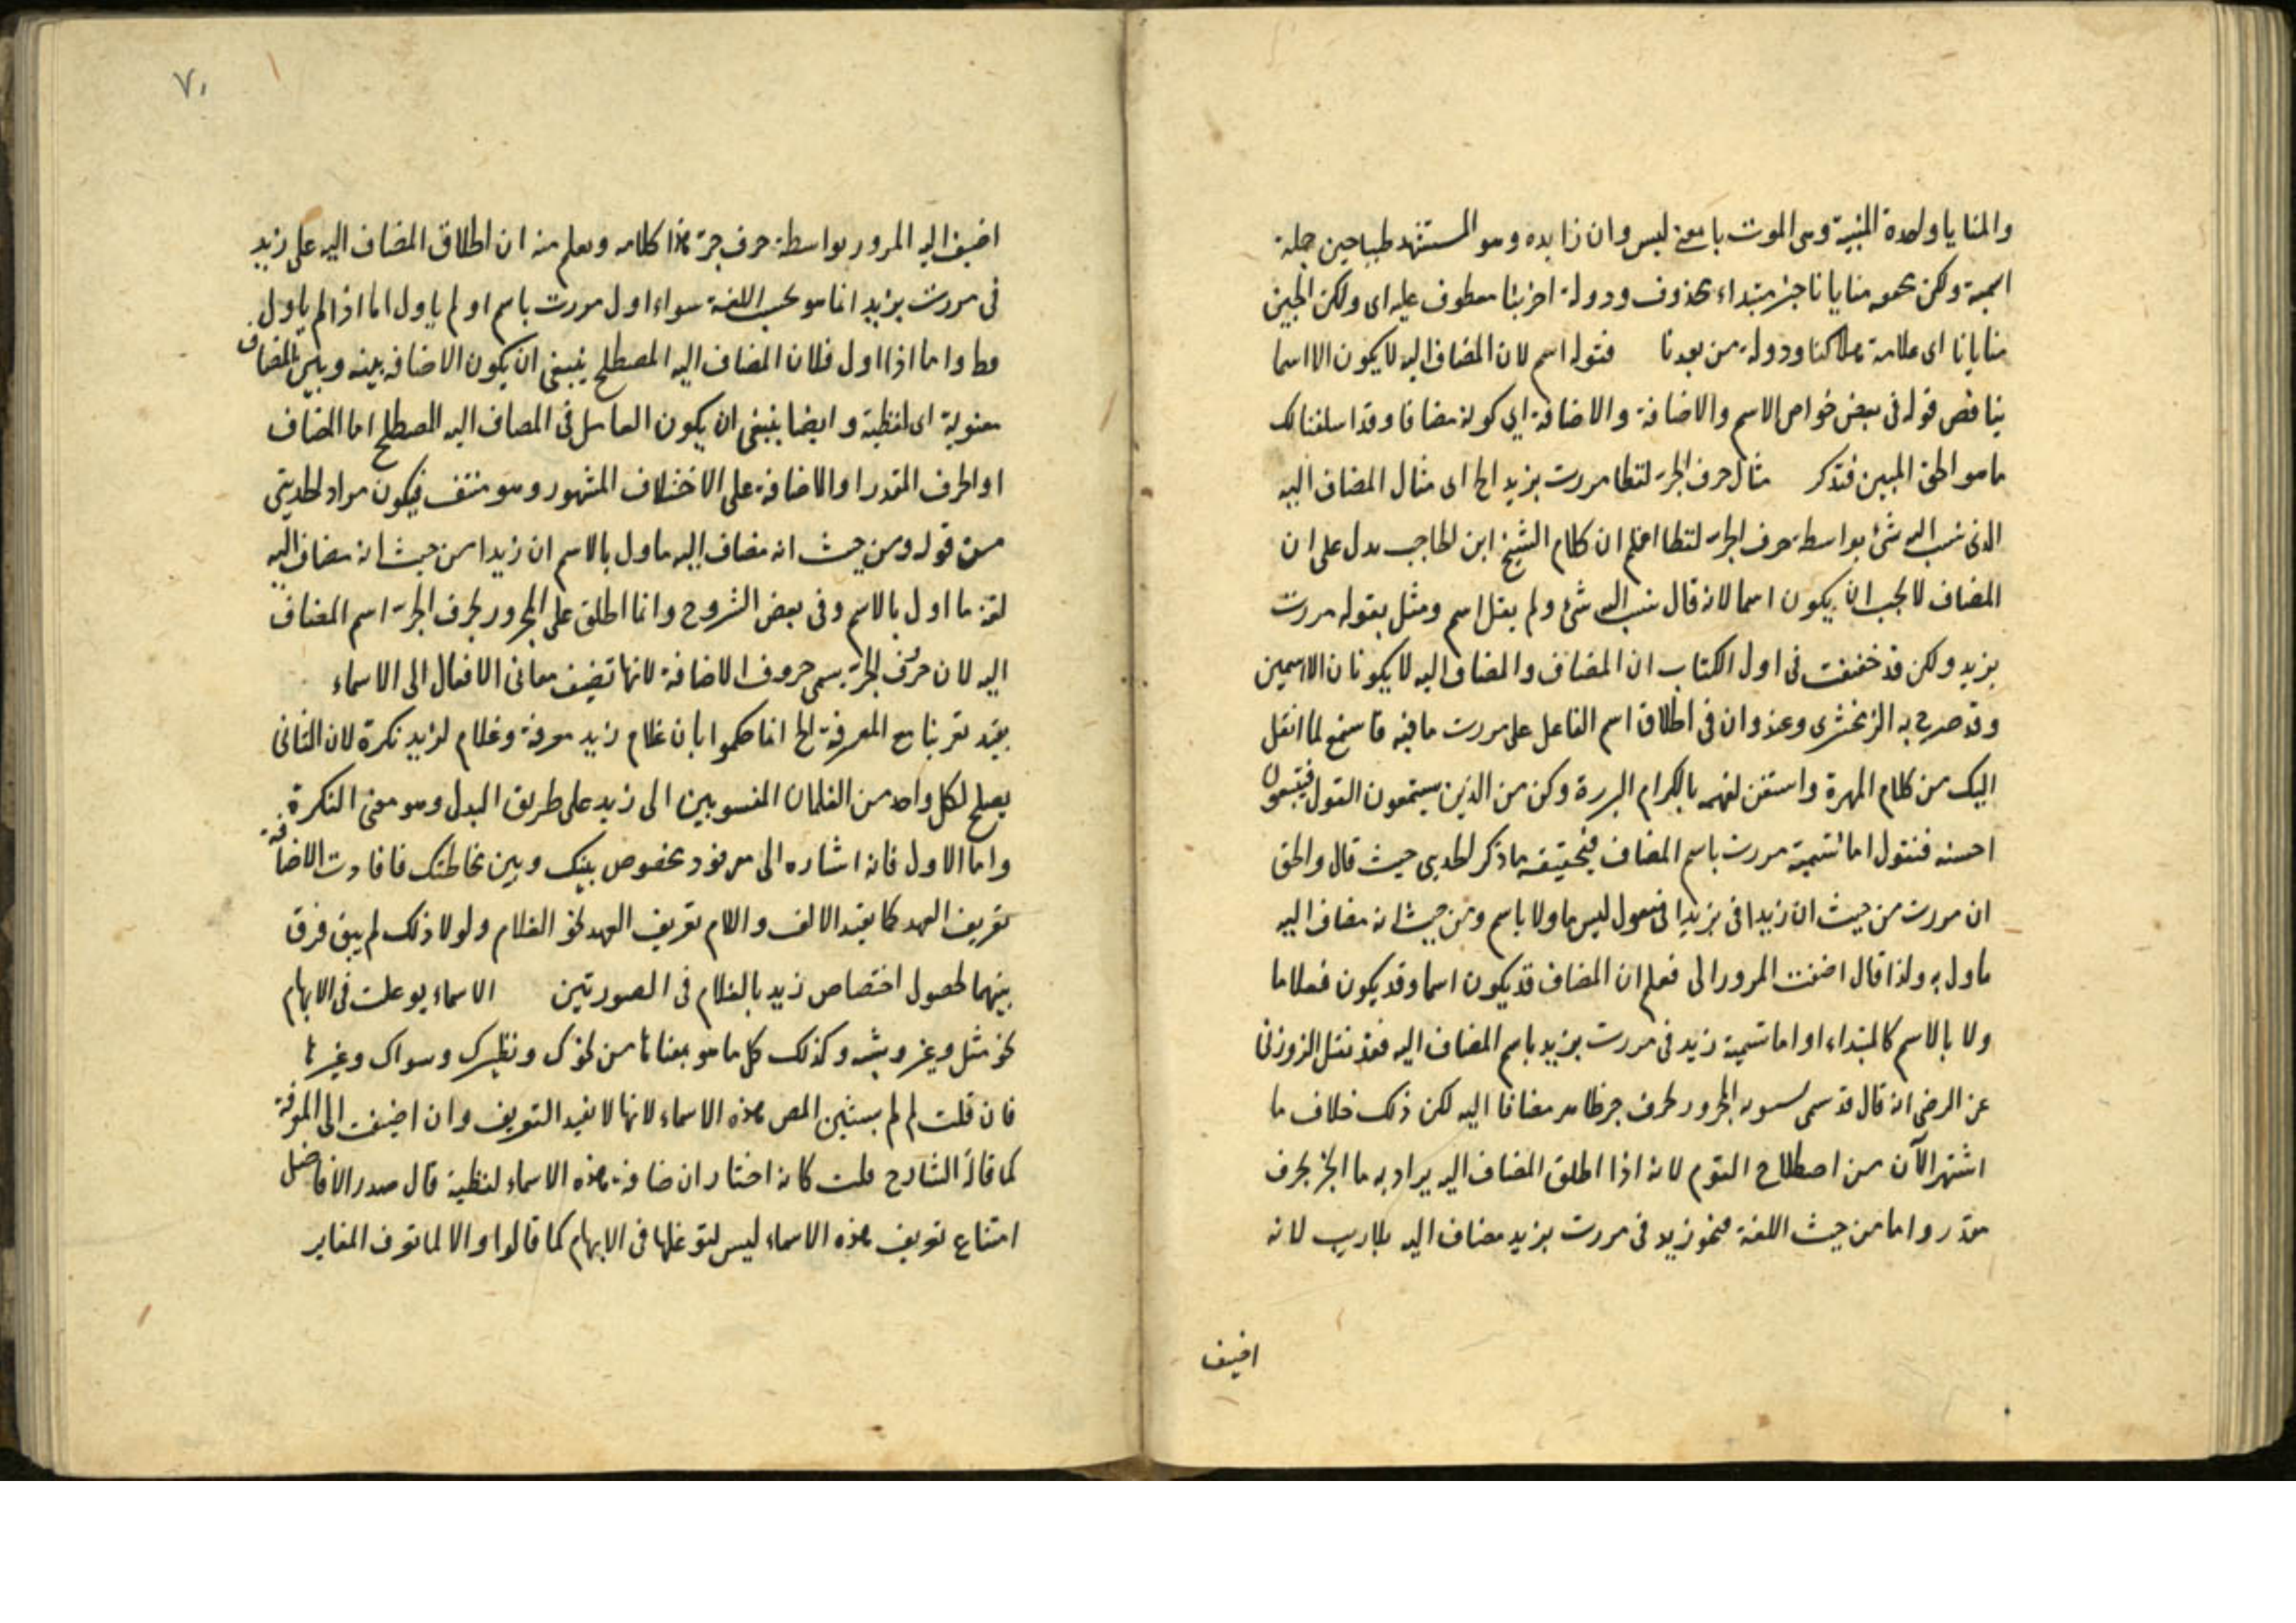 والمنايا واحدة المنية وهى الموت با معنى ليس وان زايده وهو المستشهد طبا حين جملة
اسمية ولكن نحو منايانا خبر مبتداء محذوف ودولة اخرينا معطوف عليه اى ولكن الجبن
منايانا اى علامة هلاكنا ودولة من بعدنا فقوله اسم لان المضاف اليه لا يكون الا اسما
يناقض قوله فى بعض خواص الاسم والاضافة والاضافة اى كونه مضافا وقد اسلفنا لك
ما هو الحق المبين فتذكر مثال حرف الجر لفظا مررت بزيد الخ اى مثال المضاف اليه
الذى نسب اليه شئ بواسطة حرف الجر لفظا اعلم ان كلام الشيخ ابن الحاجب يدل على ان
المضاف لا يجب ان يكون اسما لانه قال نسب اليه شئ ولم يقل اسم ومثل بقوله مررت
بزيد ولكن قد حققت فى اول الكتاب ان المضاف والمضاف اليه لا يكونان الا اسمين
وقد صرح به الزمخشرى وعند وان فى اطلاق اسم الفاعل على مررت ما فيه فاسمع لما انقل
اليك من كلام المهرة واستعن لفهمه بالكرام البررة وكن من الذين يستمعون القول فيتبعون
احسنه فنقول اما تسمية مررت باسم المضاف فتحقيقه ما ذكر الحديثى حيث قال والحق
ان مررت من حيث ان زيدا فى بزيد مفعول ليس ماولا باسم ومن حيث انه مضاف اليه
ماول به ولذا قال اضفت المرور الى فعلم ان المضاف قد يكون اسما وقد يكون فعلا ما
ولا بالاسم كالمبتداء او اما تسمية زيد فى مررت بزيد باسم المضاف اليه فقد نقل الزوزنى
عن الرضى انه قال قد سمى سيبويه المجرور بحرف جر ظاهر مضافا اليه لكن ذلك خلاف ما
اشتهر الآن من اصطلاح القوم لانه اذا اطلق المضاف اليه يراد به ما انجر بحرف
مقدر واما من حيث اللغة فنحو زيد فى مررت بزيد مضاف اليه بلا ريب لانه
اضيف
٧٠
اضيف اليه المرور بواسطة حرف جر هذا كلامه ويعلم منه ان اطلاق المضاف اليه على زيد
فى مررت بزيد انما هو بحسب اللغة سواء اول مررت باسم او لم ياول اما اذا لم ياول
فظ واما اذا اول فلان المضاف اليه المصطلح ينبغى ان يكون الاضافه بينه وبين المضاف
معنوية اى لفظية وايضا ينبغى ان يكون العامل فى المضاف اليه المصطلح اما المضاف
او الحرف المقدر او الاضافة على الاختلاف المشهور وهو منتف فيكون مراد الحديثى
من قوله ومن حيث انه مضاف اليه ماول بالاسم ان زيدا من حيث انه مضاف اليه
لغة ما اول بالاسم وفى بعض الشروح وانما اطلق على المجرور بحرف الجر اسم المضاف
اليه لان حرف الجر يسمى حروف الاضافة لانها تضيف معانى الافعال الى الاسماء
يفيد تعريفا مع المعرفة الخ انما حكموا بان غلام زيد معرفة وغلام لزيد نكرة لان الثانى
يصلح لكل واحد من الغلمان المنسوبين الى زيد على طريق البدل وهو معنى النكرة
واما الاول فانه اشاره الى معرفة مخصوص بينك وبين مخاطبك فافادت الاضافة
تعريف العهد كما يفيد الالف واللام تعريف العهد نحو الغلام ولولا ذلك لم يبق فرق
بينهما لحصول اختصاص زيد بالغلام فى الصورتين الاسماء يوغلت فى الابهام
نحو مثل وغير وشبه وكذلك كل ما هو بمعناها من نحوك ونظيرك وسواك وغيرها
فان قلت لم لم يستثن المص هذه الاسماء لانها لا يفيد التعريف وان اضيفت الى المعرفة
كما قاله الشارح قلت كانه اختار ان اضافة هذه الاسماء لفظية قال صدر الافاضل
امتناع تعريف هذه الاسماء ليس لتوغلها فى الابهام كما قالوا والا لما تعرف المغاير